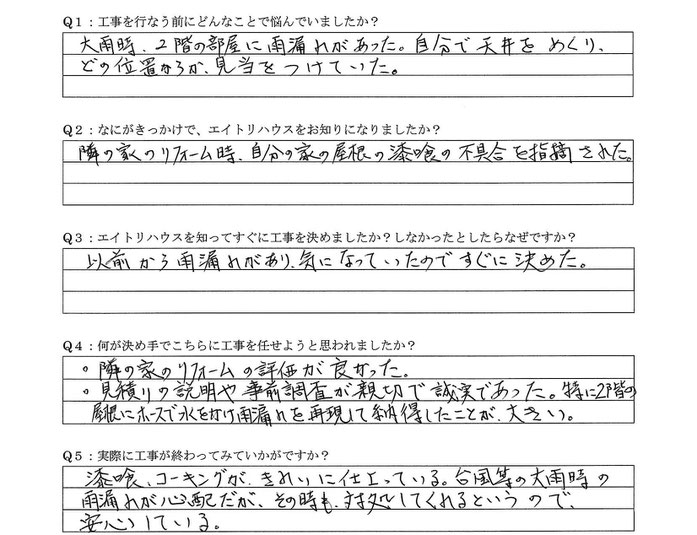 Q1：工事を行なう前にどんなことで悩んでいましたか？
大雨時、2階の部屋に雨漏れがあった。自分で天井をめくり、
どの位置からか、見当をつけていた。
Q2：なにがきっかけで、エイトリハウスをお知りになりましたか？
隣の家のリフォーム時、自分の家の屋根の漆喰の不具合を指摘された。
Q3：エイトリハウスを知ってすぐに工事を決めましたか？しなかったとしたらなぜですか？
以前から雨漏れがあり、気になっていたのですぐに決めた。
Q4：何が決め手でこちらに工事を任せようと思われましたか？
・隣の家のリフォームの評価が良かった。
・見積りの説明や事前調査が親切で誠実であった。特に2階の
屋根にホースで水をかけ雨漏れを再現して納得したことが、大きい。
Q5：実際に工事が終わってみていかがですか？
漆喰、コーキングが、きれいに仕上っている。台風等の大雨時の
雨漏れが心配だが、その時も、対処してくれるというので、
安心している。